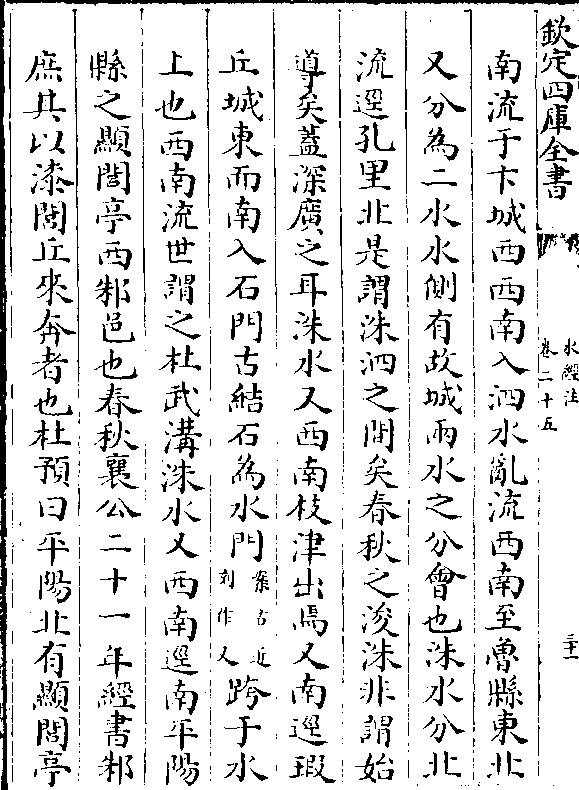 欽定四庫全書
水經注
卷二十五
三十一
南流于卞城西西南入泗水亂流西南至魯縣東北
又分為二水水側有故城兩水之分會也洙水分北
流逕孔里北是謂洙泗之間矣春秋之浚洙非謂始
導矣蓋深廣之耳洙水又西南枝津出焉又南逕瑕
丘城東而南入石門古結石為水門案古近刻作又跨于水
上也西南流世謂之杜武溝洙水又西南逕南平陽
縣之顯閭亭西邾邑也春秋襄公二十一年經書邾
庶其以漆閭丘來奔者也杜預曰平陽北有顯閭亭